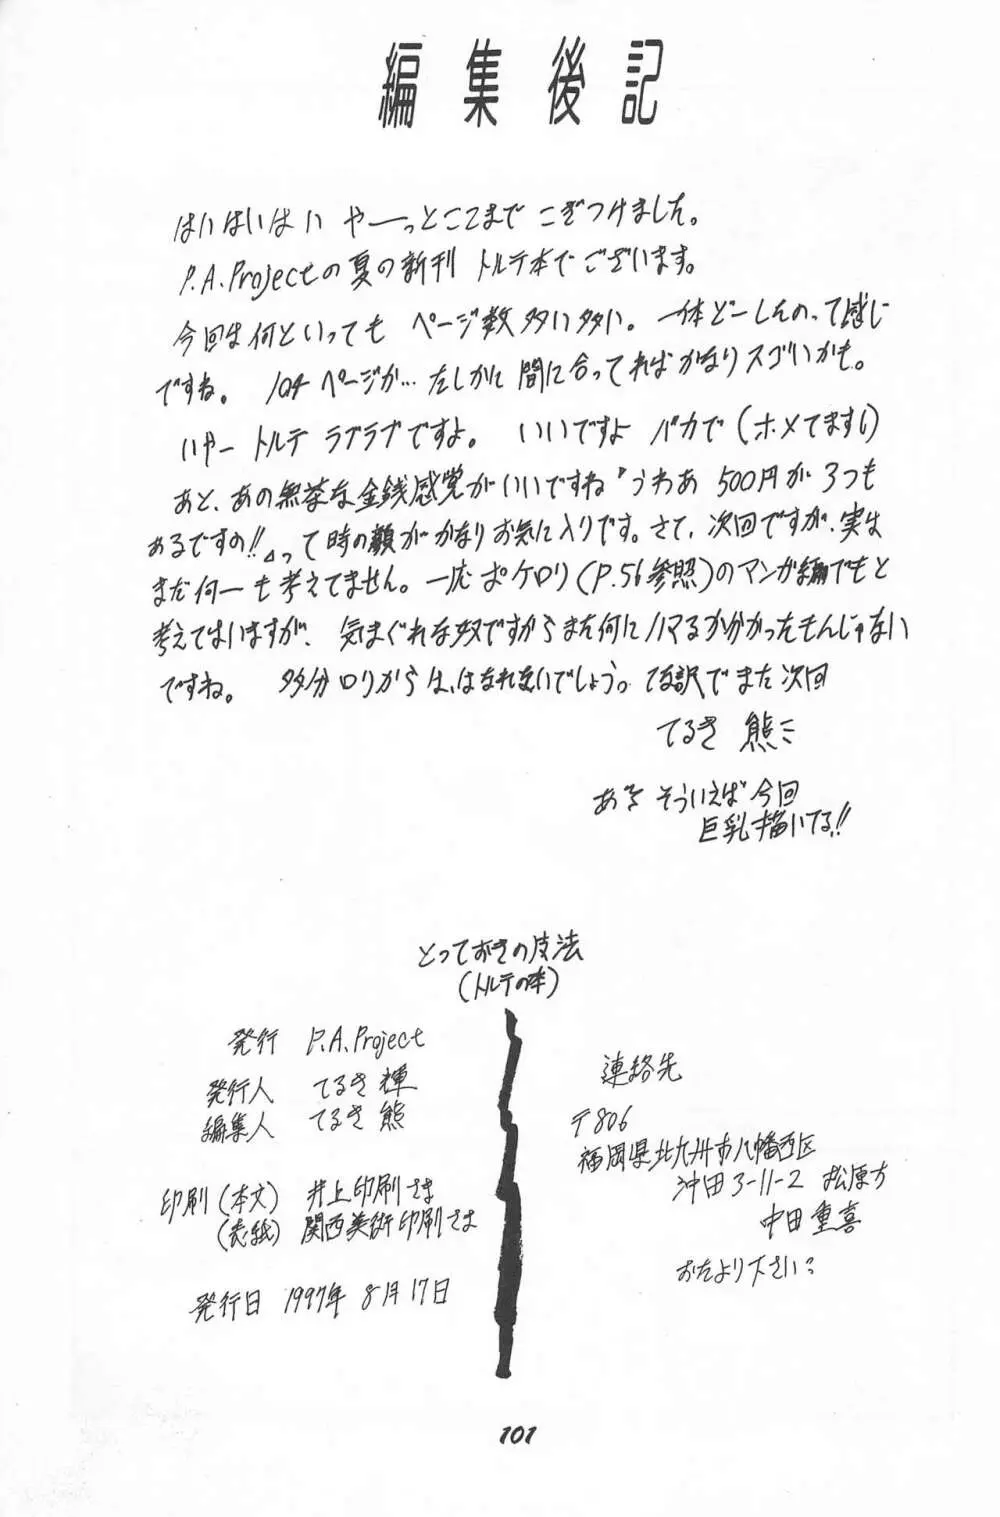 編集後記
はいはいはい やーっとここまで こぎつけました。
P.A.Projectの夏の新刊 トルテ本でございます。
今回は何といっても ページ数多い多い。一体どーしたのって感じ
ですね。 104ページか… たしかに間に合ってればかなりスゴいかも。
いやー トルテ ラブラブですよ。 いいですよ バカで(ホメてます!)
あと、あの無茶な金銭感覚がいいですね『うわあ 500円が3つも
あるですの!!』って時の顔がかなりお気に入りです。さて、次回ですが、実は
まだ何一も考えてません。一応ポケロリ(P.56参照)のマンガ編でもと
考えてはいますが、 気まぐれな奴ですからまた何にハマるか分かったもんじゃない
ですね。 多分ロリからは、はなれないでしょう。 て訳でまた次回
てるき 熊ミ
あ、そういえば 今回
巨乳描いてる!!
とっておきの技法
(トルテの本)
発行 P.A.Project
発行人 てるき 輝
編集人 てるき 熊
印刷(本文) 井上印刷さま
(表紙) 関西美術印刷さま
発行日 1997年 8月17日
連絡先
〒806
福岡県北九州市八幡西区
沖田3-11-2 松原方
中田 重喜
おたより下さい?
101